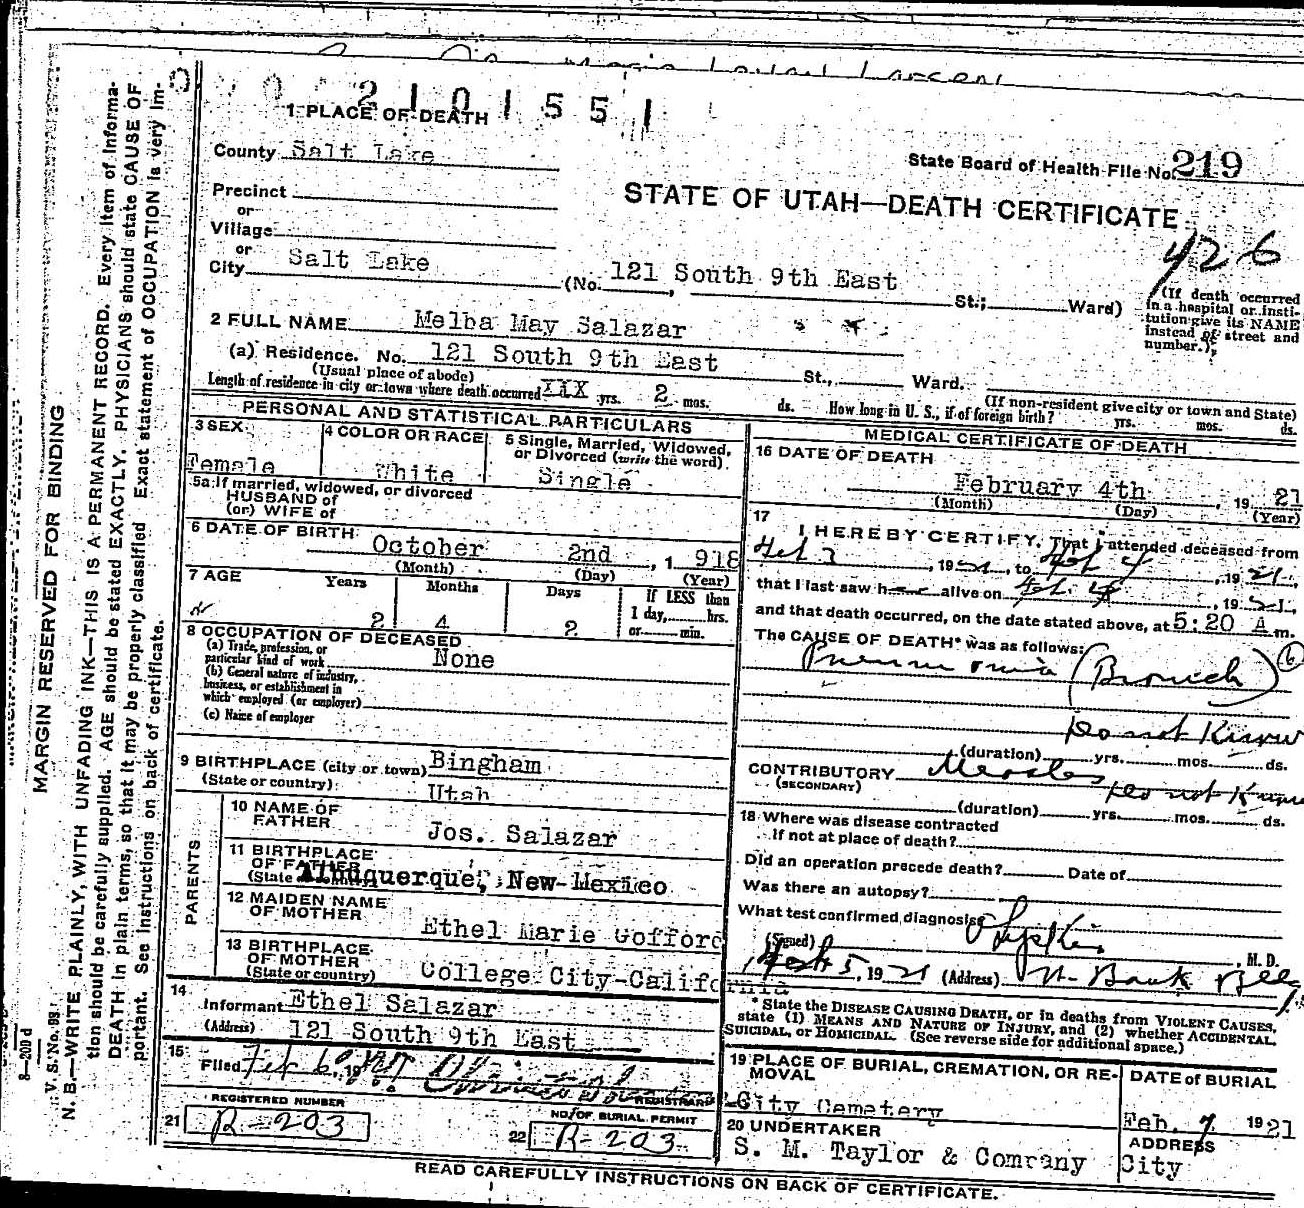 2101551
1 PLACE OF DEATH
County Salt Lake
State Board of Health File No. 219
Precinct
or
Village
STATE OF UTAH—DEATH CERTIFICATE
426
or
City Salt Lake (No. 121 South 9th East St.; Ward)
(If death occurred in a hospital or institution give its NAME instead of street and number.)
2 FULL NAME Melba May Salazar
(a) Residence. No. 121 South 9th East St., Ward.
(Usual place of abode)
(If non-resident give city or town and State)
Length of residence in city or town where death occurred XXX yrs. 2 mos. ds. How long in U. S., if of foreign birth? yrs. mos. ds.
PERSONAL AND STATISTICAL PARTICULARS
3 SEX
Female
4 COLOR OR RACE
White
5 Single, Married, Widowed, or Divorced (write the word)
Single
5a If married, widowed, or divorced
HUSBAND of
(or) WIFE of
6 DATE OF BIRTH
October 2nd, 1918
(Month) (Day) (Year)
7 AGE
Years Months Days If LESS than
1 day, hrs.
or min.
2 4 2
8 OCCUPATION OF DECEASED
(a) Trade, profession, or
particular kind of work None
(b) General nature of industry,
business, or establishment in
which employed (or employer)
(c) Name of employer
9 BIRTHPLACE (city or town) Bingham
(State or country) Utah
PARENTS
10 NAME OF FATHER Jos. Salazar
11 BIRTHPLACE OF FATHER
(State or country) Albuquerque, New-Mexico
12 MAIDEN NAME OF MOTHER Ethel Marie Gofford
13 BIRTHPLACE OF MOTHER
(State or country) College City-California
14
Informant Ethel Salazar
(Address) 121 South 9th East
15
Filed Feb 6, 19
REGISTRAR
REGISTERED NUMBER
21 R-203
NO. OF BURIAL PERMIT
22 R-203
MEDICAL CERTIFICATE OF DEATH
16 DATE OF DEATH
February 4th, 1921
(Month) (Day) (Year)
17
I HEREBY CERTIFY, That I attended deceased from
Feb 3, 1921, to Feb 4, 1921,
that I last saw her alive on Feb. 4, 1921,
and that death occurred, on the date stated above, at 5:20 A m.
The CAUSE OF DEATH* was as follows:
Pneumonia (Bronch) 6
Do not Know
(duration) yrs. mos. ds.
CONTRIBUTORY Measles
(SECONDARY)
Do not Know
(duration) yrs. mos. ds.
18 Where was disease contracted
if not at place of death?
Did an operation precede death? Date of
Was there an autopsy?
What test confirmed diagnosis?
(Signed) , M. D.
Feb 5, 1921 (Address) Bank Bldg
* State the DISEASE CAUSING DEATH, or in deaths from VIOLENT CAUSES,
state (1) MEANS AND NATURE OF INJURY, and (2) whether ACCIDENTAL,
SUICIDAL, or HOMICIDAL. (See reverse side for additional space.)
19 PLACE OF BURIAL, CREMATION, OR REMOVAL
City Cemetery
DATE of BURIAL
Feb. 7 1921
20 UNDERTAKER
S. M. Taylor & Company
ADDRESS
City
READ CAREFULLY INSTRUCTIONS ON BACK OF CERTIFICATE.
MARGIN RESERVED FOR BINDING
N. B.—WRITE PLAINLY, WITH UNFADING INK—THIS IS A PERMANENT RECORD. Every item of informa-
tion should be carefully supplied. AGE should be stated EXACTLY. PHYSICIANS should state CAUSE OF
DEATH in plain terms, so that it may be properly classified. Exact statement of OCCUPATION is very im-
portant. See instructions on back of certificate.
V. S. No. 99.
8—200 d